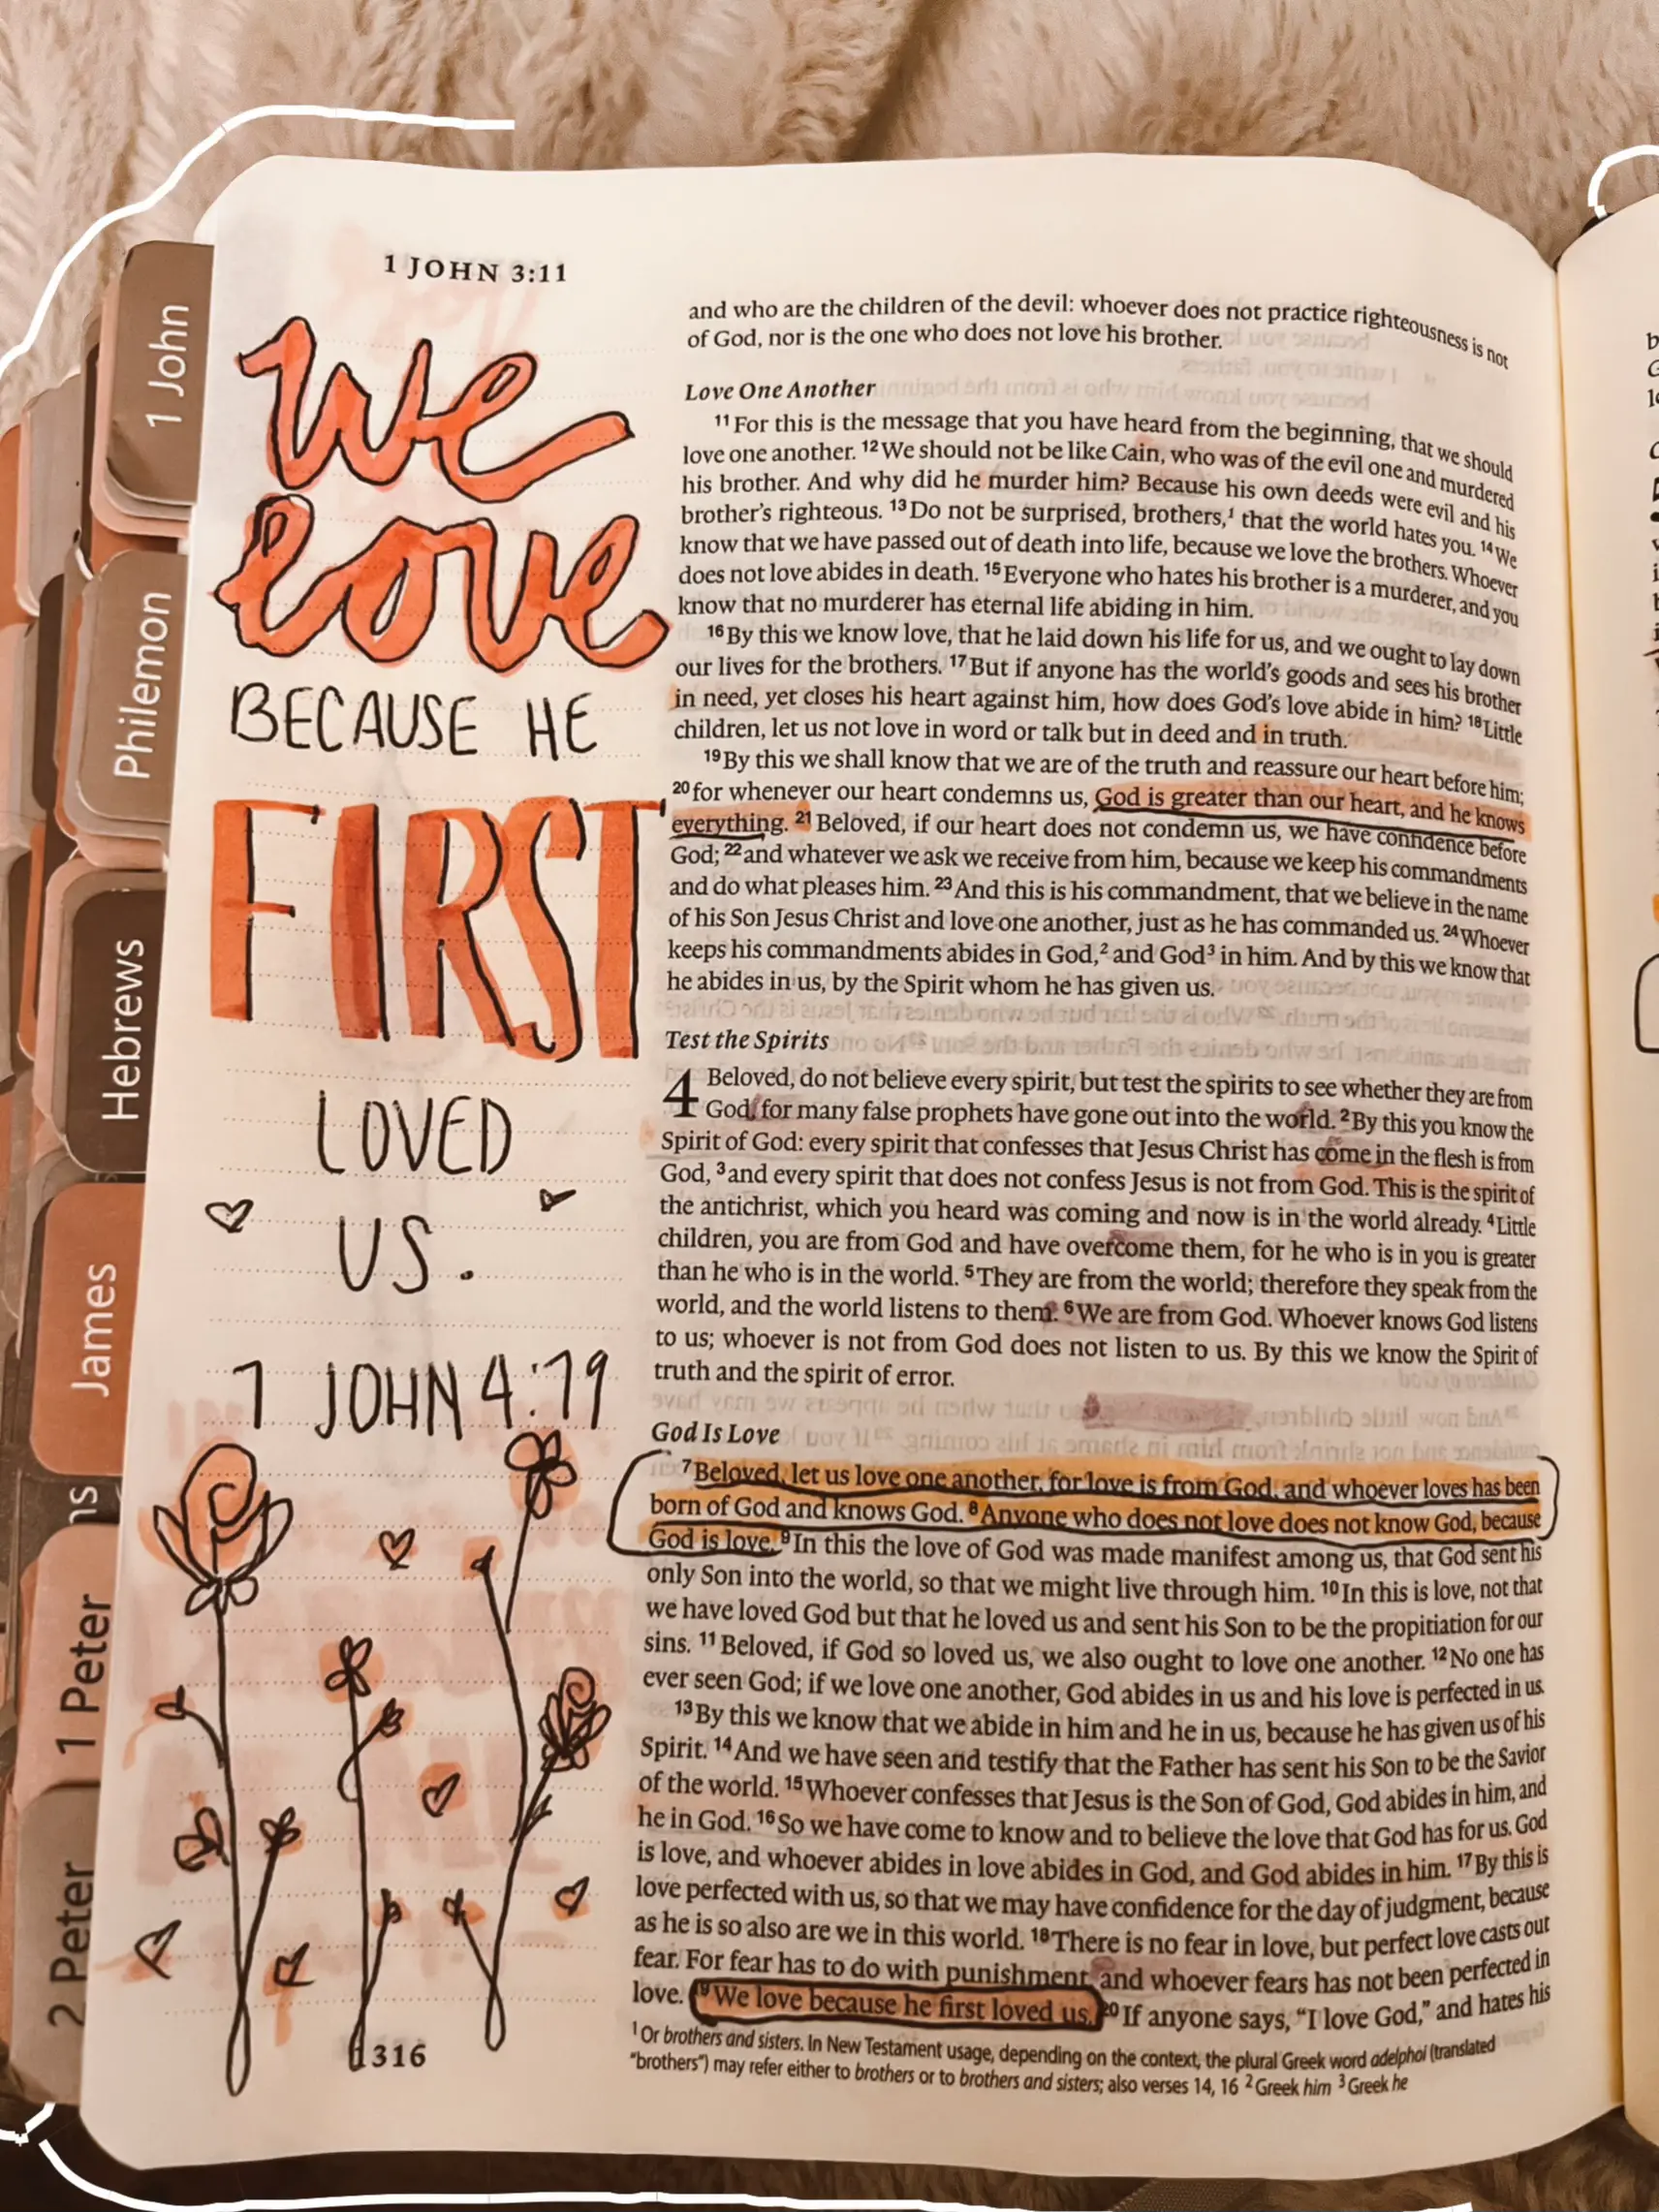 1 JOHN 3:11
we
love
BECAUSE HE
FIRST
LOVED
US.
1 JOHN 4:19
1 John
Philemon
Hebrews
James
1 Peter
2 Peter
and who are the children of the devil: whoever does not practice righteousness is not
of God, nor is the one who does not love his brother.
Love One Another
11 For this is the message that you have heard from the beginning, that we should
love one another. 12 We should not be like Cain, who was of the evil one and murdered
his brother. And why did he murder him? Because his own deeds were evil and his
brother's righteous. 13 Do not be surprised, brothers,1 that the world hates you. 14 We
know that we have passed out of death into life, because we love the brothers. Whoever
does not love abides in death. 15 Everyone who hates his brother is a murderer, and you
know that no murderer has eternal life abiding in him.
16 By this we know love, that he laid down his life for us, and we ought to lay down
our lives for the brothers. 17 But if anyone has the world's goods and sees his brother
in need, yet closes his heart against him, how does God's love abide in him? 18 Little
children, let us not love in word or talk but in deed and in truth.
19 By this we shall know that we are of the truth and reassure our heart before him;
20 for whenever our heart condemns us, God is greater than our heart, and he knows
everything. 21 Beloved, if our heart does not condemn us, we have confidence before
God; 22 and whatever we ask we receive from him, because we keep his commandments
and do what pleases him. 23 And this is his commandment, that we believe in the name
of his Son Jesus Christ and love one another, just as he has commanded us. 24 Whoever
keeps his commandments abides in God,2 and God3 in him. And by this we know that
he abides in us, by the Spirit whom he has given us.
Test the Spirits
4 Beloved, do not believe every spirit, but test the spirits to see whether they are from
God, for many false prophets have gone out into the world. 2 By this you know the
Spirit of God: every spirit that confesses that Jesus Christ has come in the flesh is from
God, 3 and every spirit that does not confess Jesus is not from God. This is the spirit of
the antichrist, which you heard was coming and now is in the world already. 4 Little
children, you are from God and have overcome them, for he who is in you is greater
than he who is in the world. 5 They are from the world; therefore they speak from the
world, and the world listens to them. 6 We are from God. Whoever knows God listens
to us; whoever is not from God does not listen to us. By this we know the Spirit of
truth and the spirit of error.
God Is Love
7 Beloved, let us love one another, for love is from God, and whoever loves has been
born of God and knows God. 8 Anyone who does not love does not know God, because
God is love. 9 In this the love of God was made manifest among us, that God sent his
only Son into the world, so that we might live through him. 10 In this is love, not that
we have loved God but that he loved us and sent his Son to be the propitiation for our
sins. 11 Beloved, if God so loved us, we also ought to love one another. 12 No one has
ever seen God; if we love one another, God abides in us and his love is perfected in us.
13 By this we know that we abide in him and he in us, because he has given us of his
Spirit. 14 And we have seen and testify that the Father has sent his Son to be the Savior
of the world. 15 Whoever confesses that Jesus is the Son of God, God abides in him, and
he in God. 16 So we have come to know and to believe the love that God has for us. God
is love, and whoever abides in love abides in God, and God abides in him. 17 By this is
love perfected with us, so that we may have confidence for the day of judgment, because
as he is so also are we in this world. 18 There is no fear in love, but perfect love casts out
fear. For fear has to do with punishment, and whoever fears has not been perfected in
love. 19 We love because he first loved us. 20 If anyone says, "I love God," and hates his
1 Or brothers and sisters. In New Testament usage, depending on the context, the plural Greek word adelphoi (translated
"brothers") may refer either to brothers or to brothers and sisters; also verses 14, 16 2 Greek him 3 Greek he
1316